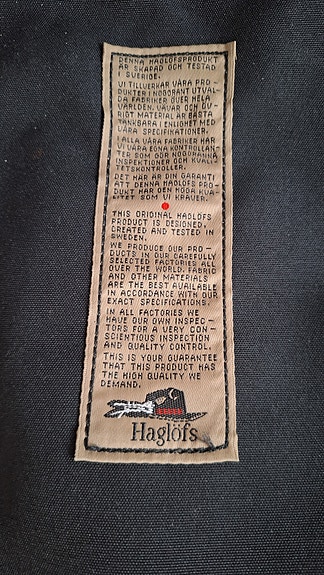 DENNA HAGLÖFSPRODUKT
ÄR SKAPAD OCH TESTAD
I SVERIGE.
VI TILLVERKAR VÅRA PRO-
DUKTER I NOGGRANT UTVAL-
DA FABRIKER ÖVER HELA
VÄRLDEN. VÄVAR OCH ÖV-
RIGT MATERIAL ÄR BÄSTA
TÄNKBARA I ENLIGHET MED
VÅRA SPECIFIKATIONER.
I ALLA VÅRA FABRIKER HAR
VI VÅRA EGNA KONTROLLAN-
TER SOM GÖR NOGGRANNA
INSPEKTIONER OCH KVALI-
TETSKONTROLLER.
DET HÄR ÄR DIN GARANTI
ATT DENNA HAGLÖFS PRO-
DUKT HAR DEN HÖGA KVA-
LITET SOM VI KRÄVER.
THIS ORIGINAL HAGLÖFS
PRODUCT IS DESIGNED,
CREATED AND TESTED IN
SWEDEN.
WE PRODUCE OUR PRO-
DUCTS IN OUR CAREFULLY
SELECTED FACTORIES ALL
OVER THE WORLD. FABRIC
AND OTHER MATERIALS
ARE THE BEST AVAILABLE
IN ACCORDANCE WITH OUR
EXACT SPECIFICATIONS.
IN ALL FACTORIES WE
HAVE OUR OWN INSPEC-
TORS FOR A VERY CON-
SCIENTIOUS INSPECTION
AND QUALITY CONTROL.
THIS IS YOUR GUARANTEE
THAT THIS PRODUCT HAS
THE HIGH QUALITY WE
DEMAND.
Haglöfs